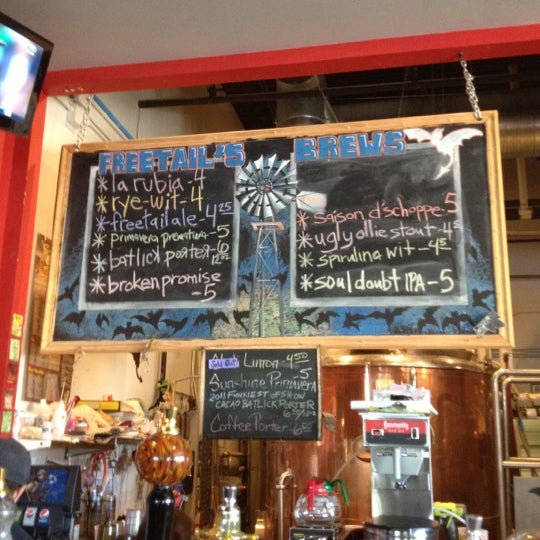 FREETAIL'S BREWS
*la rubia-4
*rye-wit-4
*freetail ale-4.25
*primavera prematura-5
*batlick porter-6
12 oz
*broken promise
-5
*saison d'schoppe-5
*ugly ollie stout-4.5
*spirulina wit-4.5
*soul doubt IPA-5
Sold Out!
Limon 4.50
Sunshine Primavera
-5
CACAO BATLICK PORTER
Coffee Porter-6.00
Community
pepsi